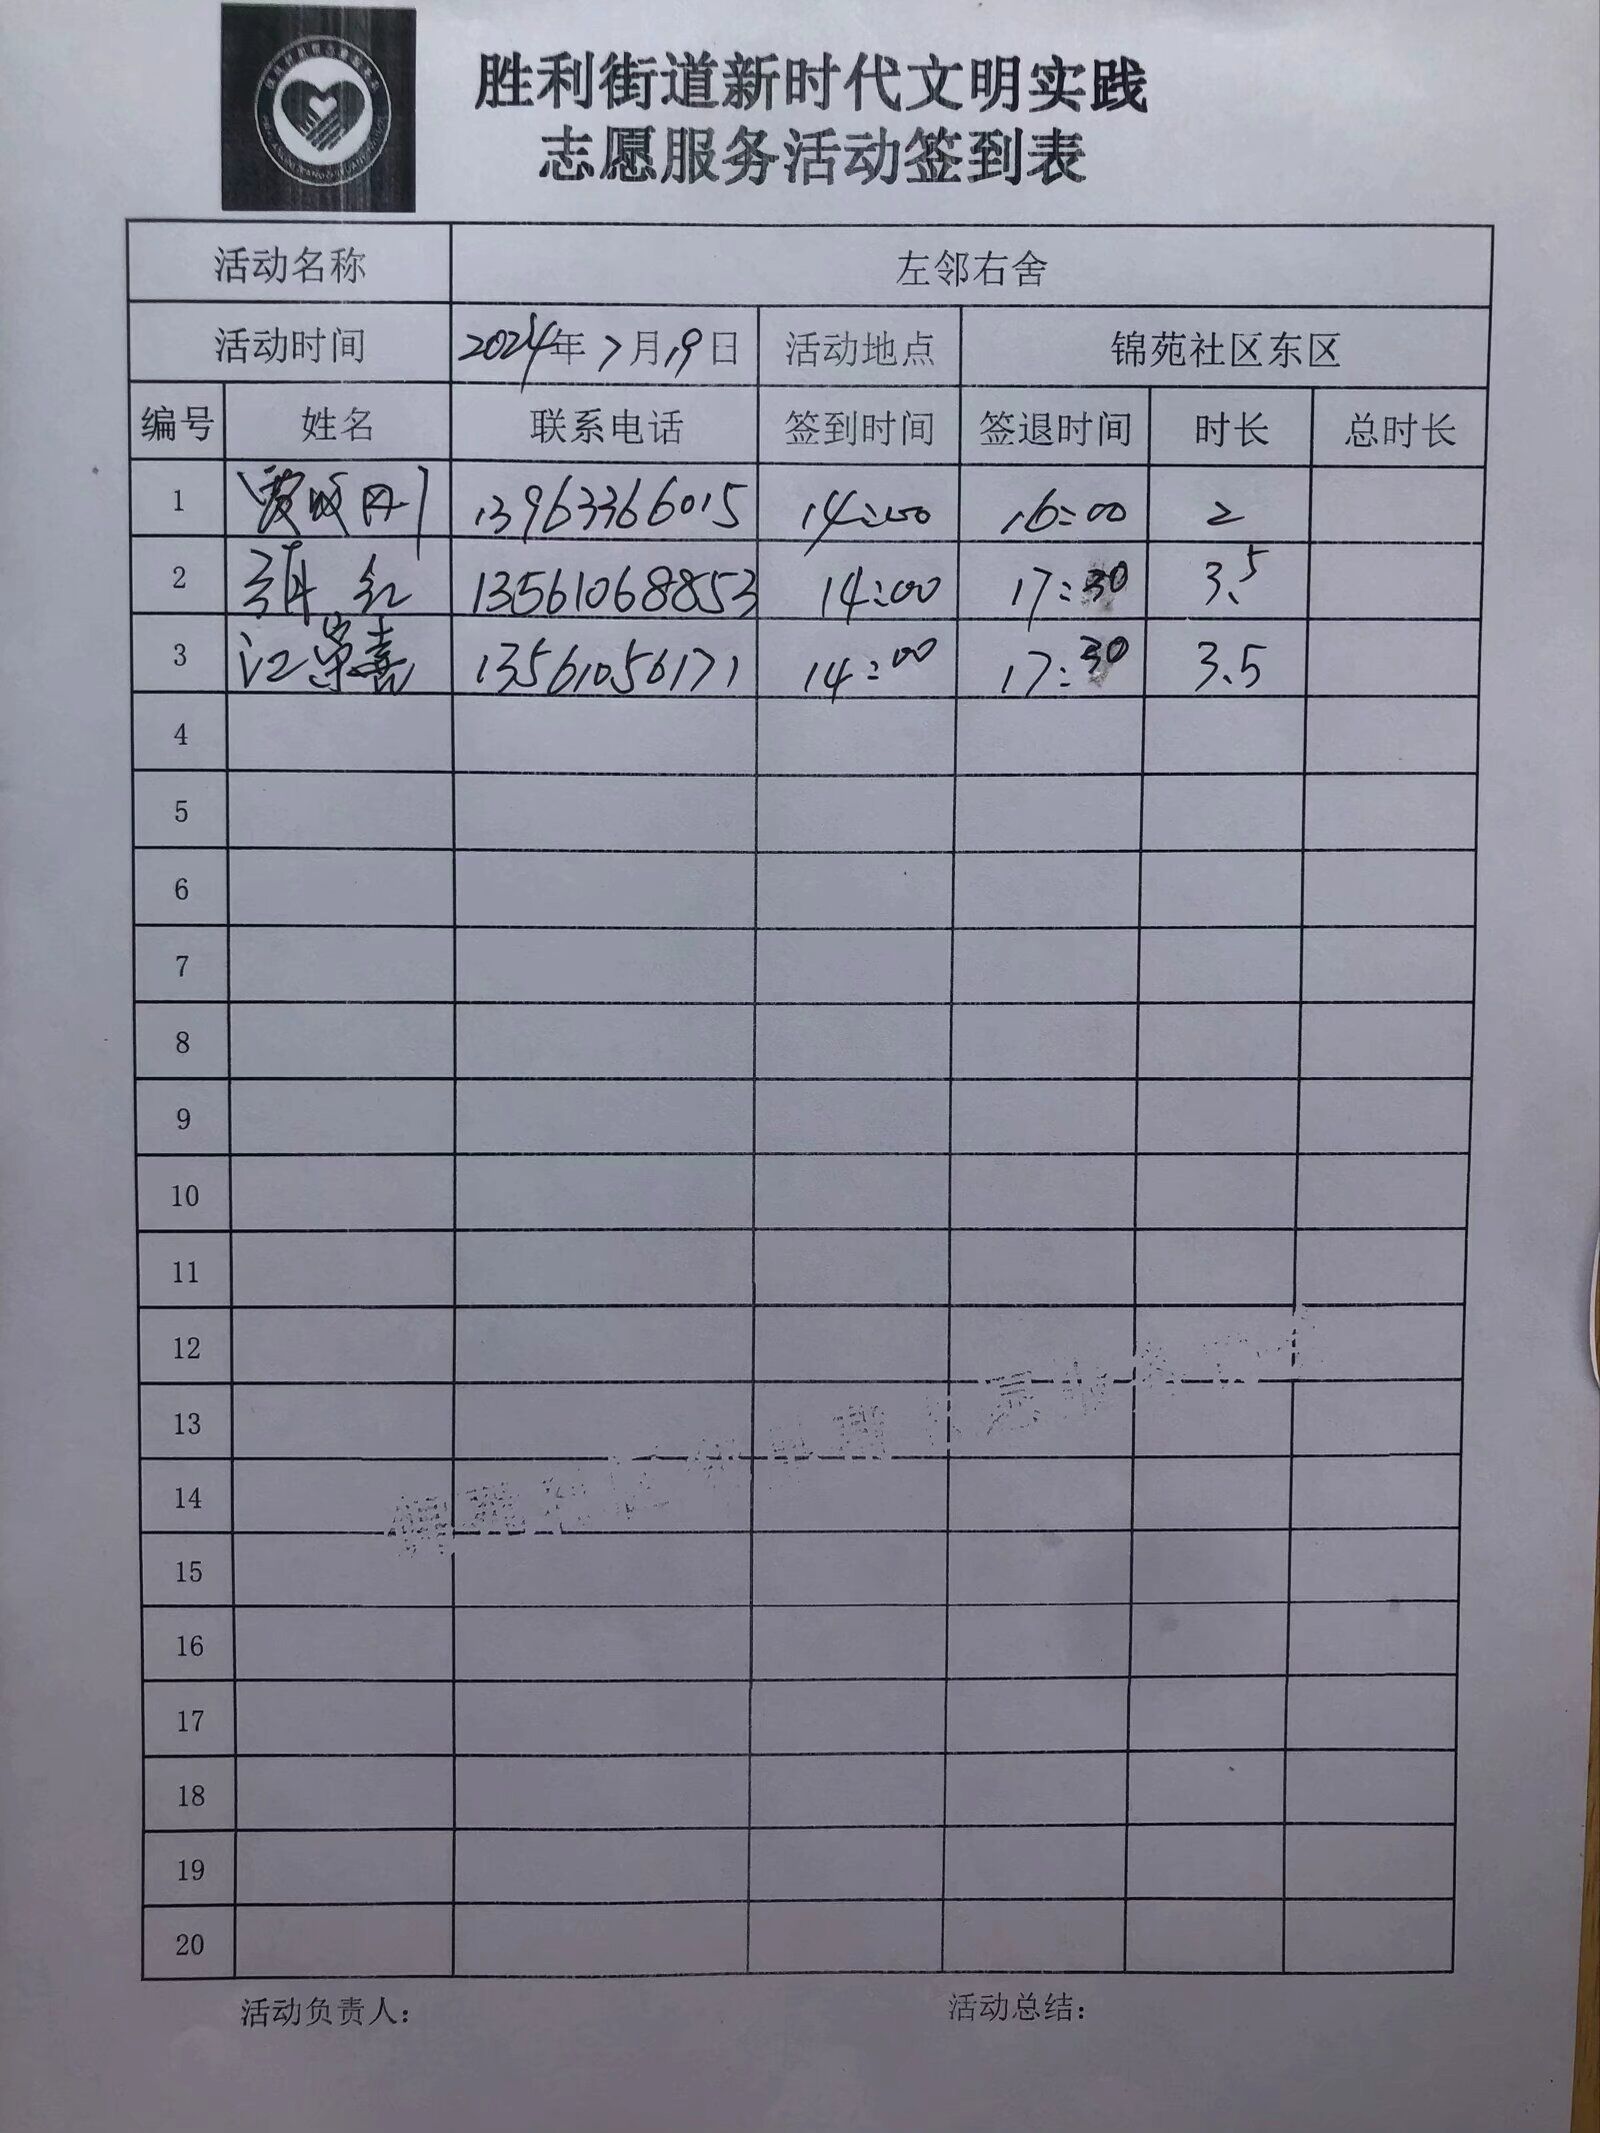 胜利街道新时代文明实践
志愿服务活动签到表
活动名称 左邻右舍
活动时间 2024年7月19日 活动地点 锦苑社区东区
编号 姓名 联系电话 签到时间 签退时间 时长 总时长
1 13963366015 14:00 16:00 2
2 红 13561068853 14:00 17:30 3.5
3 江荣喜 13561056171 14:00 17:30 3.5
4
5
6
7
8
9
10
11
12
13
14
15
16
17
18
19
20
活动负责人: 活动总结: